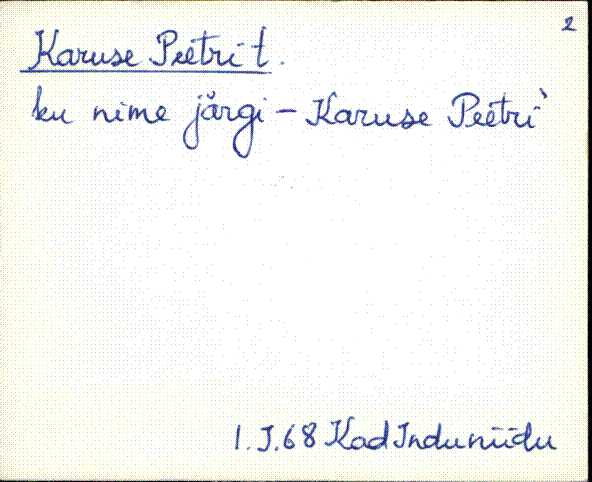 2
Karuse Peetri t.
ku nime järgi – Karuse Peetri`
1. I. 68 Kad Induniidu